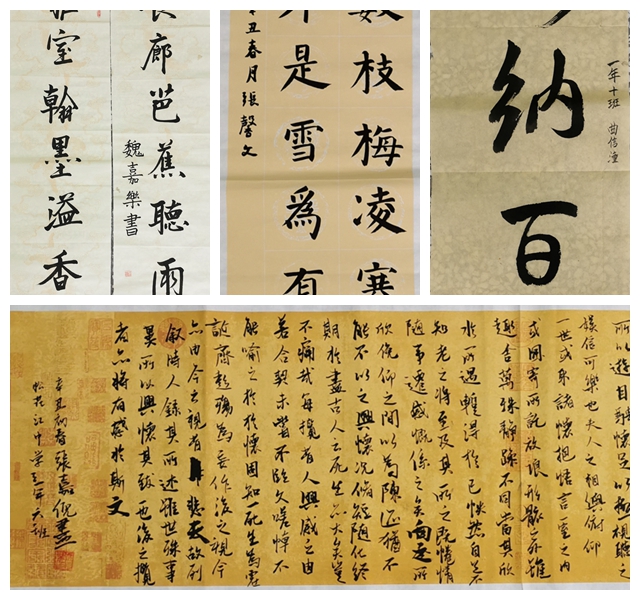 廊芭蕉聽雨
室翰墨溢香
魏嘉樂書
數枝梅凌寒
不是雪爲有
辛丑春月張馨文
納百
一年十班
所以遊目騁懷足以極視聽之
娛信可樂也夫人之相與俯仰
一世或取諸懷抱悟言一室之内
或因寄所託放浪形骸之外雖
趣舍萬殊靜躁不同當其欣
於所遇輒得於己怏然自足不
知老之將至及其所之既惓情
隨事遷感慨係之矣向之所
欣俛仰之間以爲陳迹猶不
能不以之興懷況脩短隨化終
期於盡古人云死生亦大矣豈
不痛哉每攬昔人興感之由
若合一契未嘗不臨文嗟悼不
能喻之於懷固知一死生爲虛
誕齊彭殤爲妄作後之視今
亦由今之視昔悲夫故列
敘時人錄其所述雖世殊事
異所以興懷其致一也後之攬
者亦將有感於斯文
辛丑初春張嘉倪書
松花江中学